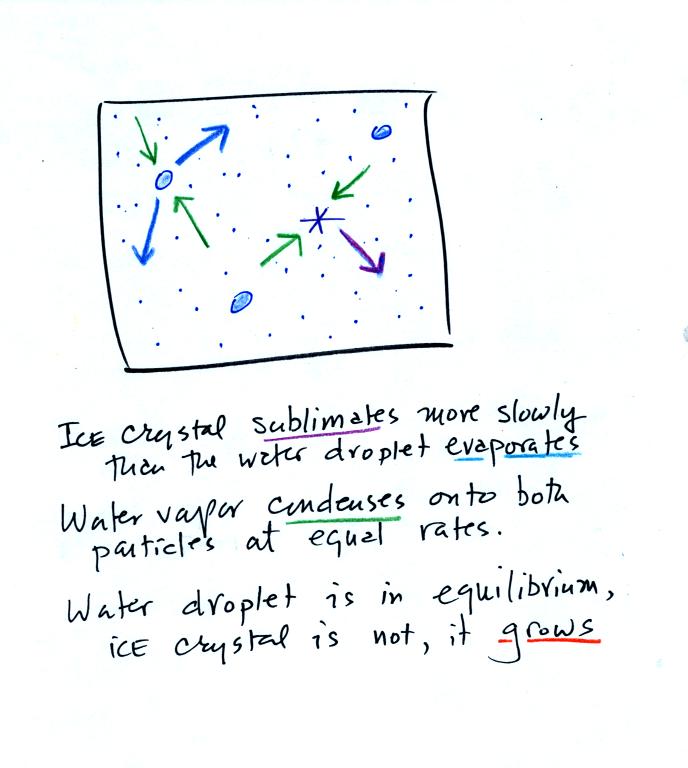 ICE crystal sublimates more slowly
than the water droplet evaporates
Water vapor condenses onto both
particles at equal rates.
Water droplet is in equilibrium,
ICE crystal is not, it grows